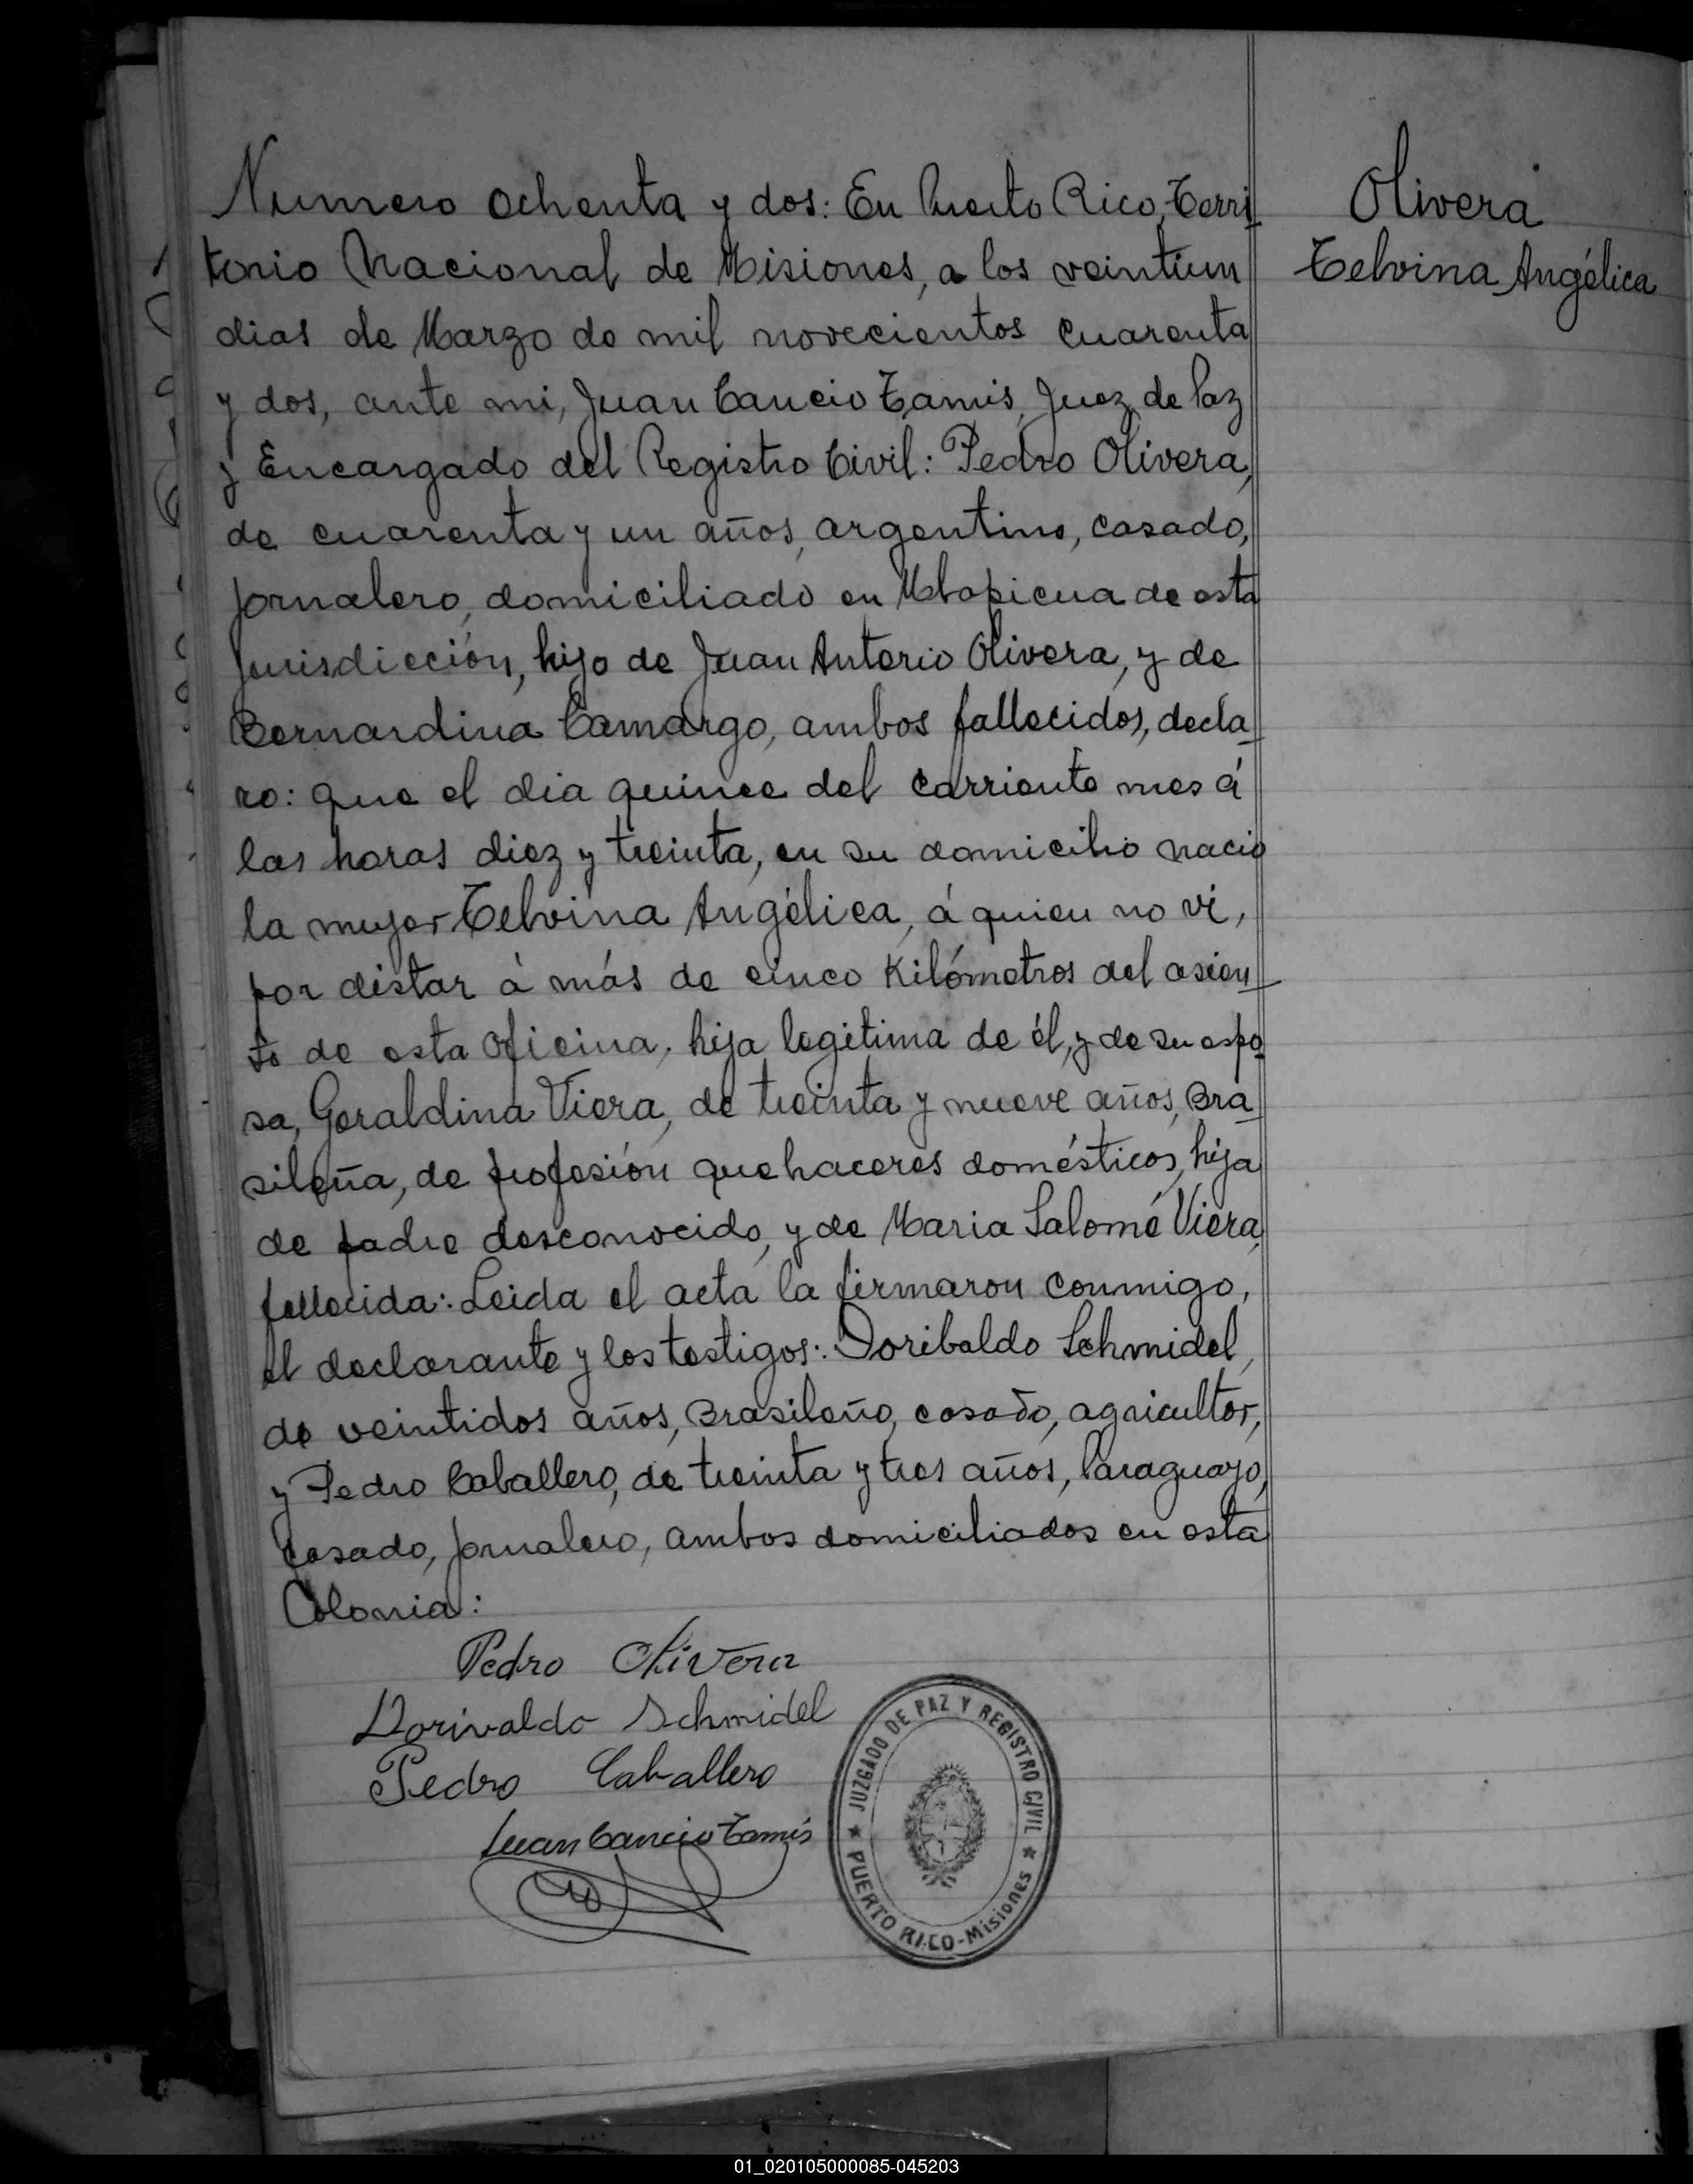 Numero ochenta y dos: En Puerto Rico, Terri-
torio Nacional de Misiones, a los veintiun
dias de Marzo de mil novecientos cuarenta
y dos, ante mi, Juan Cancio Tamis, Juez de Paz
y Encargado del Registro Civil: Pedro Olivera,
de cuarenta y un años, argentino, casado,
jornalero, domiciliado en Mbopicua de esta
jurisdicción, hijo de Juan Antonio Olivera, y de
Bernardina Camargo, ambos fallecidos, decla-
ro: que el dia quince del corriente mes á
las horas diez y treinta, en su domicilio nacio
la mujer Telvina Angélica, á quien no vi,
por distar á más de cinco Kilómetros del asien-
to de esta oficina, hija legitima de él, y de su espo-
sa, Geraldina Viera, de treinta y nueve años, Bra-
sileña, de profesión quehaceres domésticos, hija
de padre desconocido, y de Maria Salomé Viera,
fallecida: Leida el acta la firmaron conmigo,
el declarante y los testigos: Doribaldo Schmidel,
de veintidos años, Brasileño, casado, agricultor,
y Pedro Caballero, de treinta y tres años, Paraguayo,
casado, jornalero, ambos domiciliados en esta
Colonia:
Pedro Olivera
Dorivaldo Schmidel
Pedro Caballero
Juan Cancio Tamis
Olivera
Telvina Angélica
JUZGADO DE PAZ Y REGISTRO CIVIL
★ PUERTO RICO-Misiones ★
01_020105000085-045203